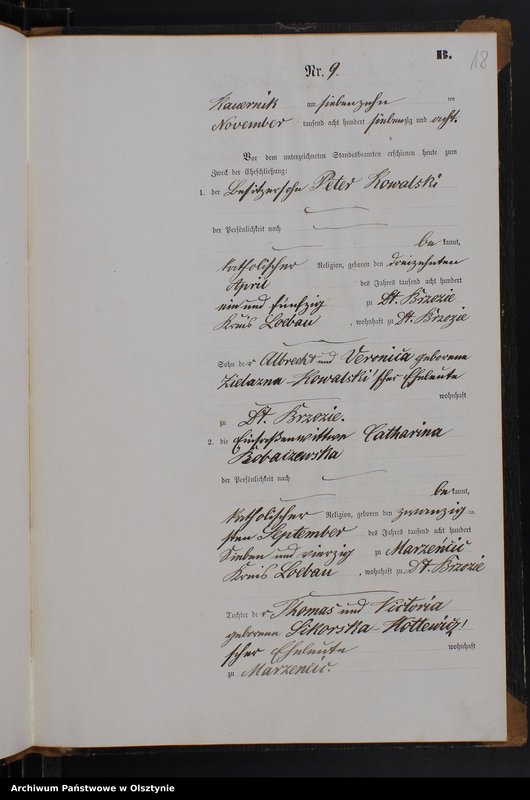 B.
18
Nr. 9.
Kauernik am siebenzehn ten
November tausend acht hundert siebenzig und acht.
Vor dem unterzeichneten Standesbeamten erschienen heute zum
Zweck der Eheschließung:
1. der Besitzersohn Peter Kowalski
der Persönlichkeit nach
be kannt,
katholischer Religion, geboren den dreizehnten
April des Jahres tausend acht hundert
ein und fünfzig zu Dt. Brzozie
Kreis Loebau, wohnhaft zu Dt. Brzozie
Sohn der Albrecht und Veronica geborene
Zielazna-Kowalski'scher Eheleute
wohnhaft
zu Dt. Brzozie.
2. die Einsaßenwittwe Catharina
Bobaczewska
der Persönlichkeit nach
be kannt,
katholischer Religion, geboren den zwanzig=
sten September des Jahres tausend acht hundert
sieben und vierzig zu Marzencic
Kreis Loebau, wohnhaft zu Dt. Brzozie
Tochter der Thomas und Victoria
geborene Sikorska-
scher Eheleute wohnhaft
zu Marzencic.
Archiwum Państwowe w Olsztynie